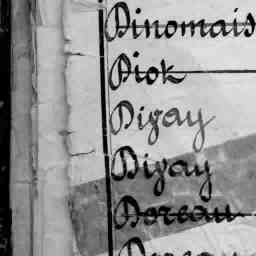 Dinomais
Diok
Digay
Digay
Doreau